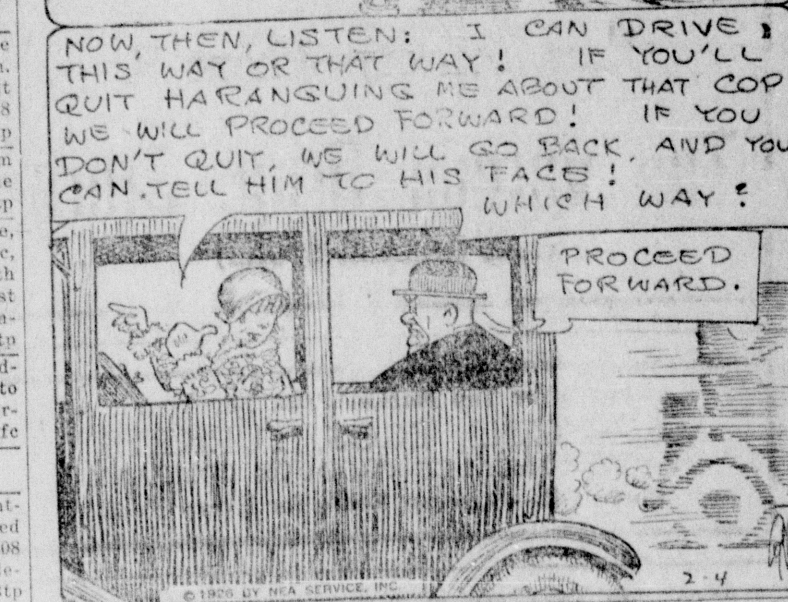 NOW, THEN, LISTEN: I CAN DRIVE
THIS WAY OR THAT WAY! IF YOU'LL
QUIT HARANGUING ME ABOUT THAT COP
WE WILL PROCEED FORWARD! IF YOU
DON'T QUIT, WE WILL GO BACK, AND YOU
CAN TELL HIM TO HIS FACE!
WHICH WAY?
PROCEED
FORWARD.
2-4
© 1926 BY NEA SERVICE, INC.